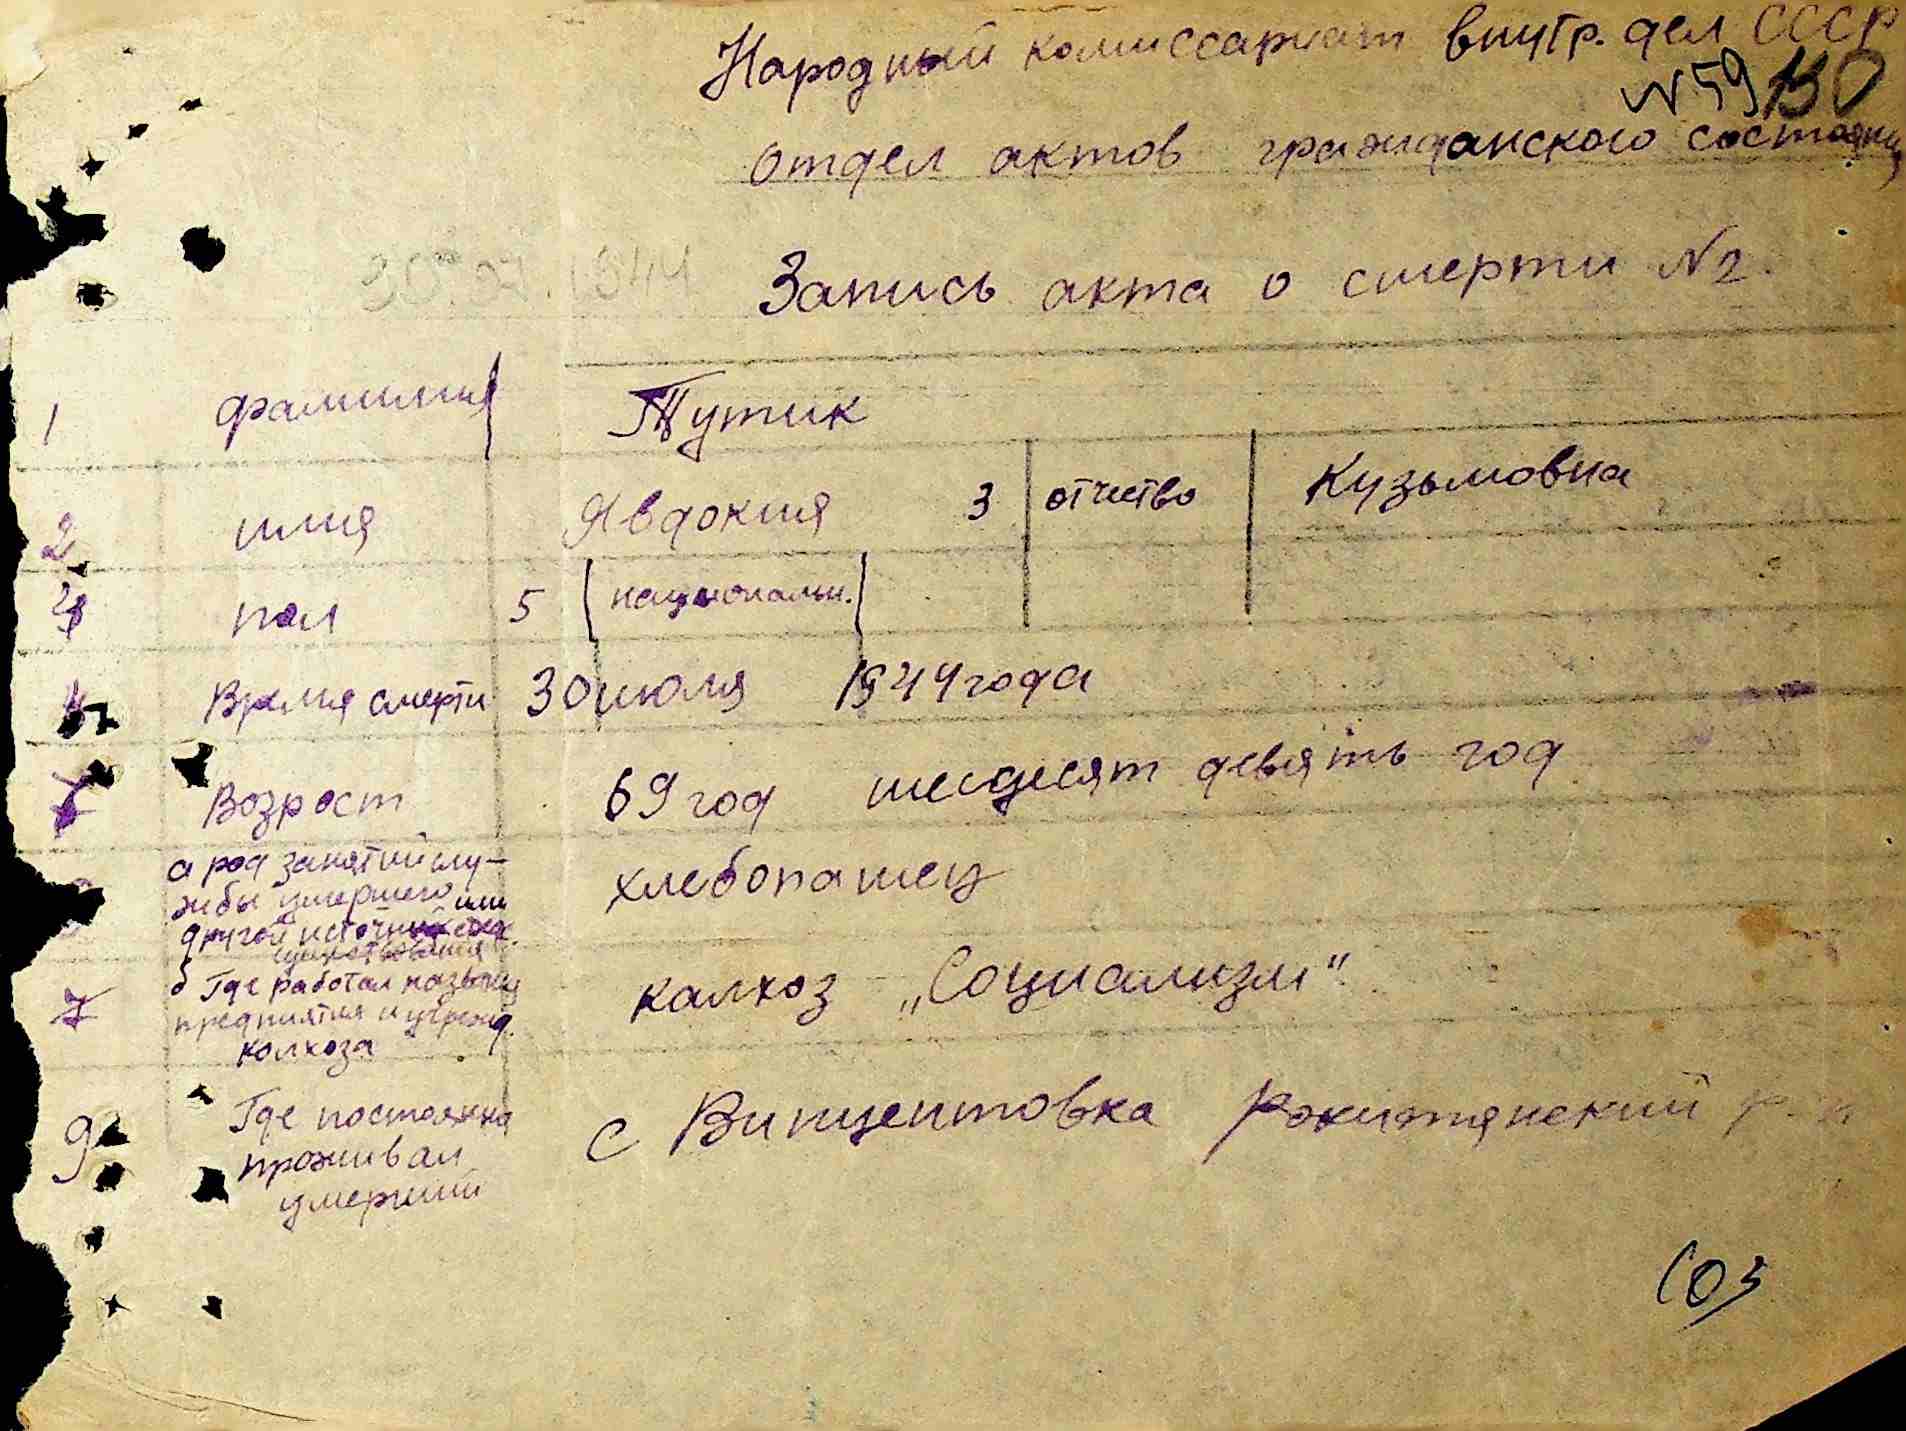 Народный комиссариат внутр. дел СССР
N 59 130
отдел актов гражданского состояния
30.07.1944
Запись акта о смерти N2.
1 фамилия Тутик
2 имя Явдокия 3 отчество Кузьмовна
4 пол 5 национальн.
Время смерти 30 июля 1944 года
Возраст 69 год шесдесят девять год
а род занятий слу-
жбы умершего или
другой источник
существования
хлебопашец
б Где работал назван
предпиятия и учрежд.
колхоза
7 калхоз „Социализм"
9 Где постоянно
проживал
умерший
с Винцентовка Ракитянский р-н
103